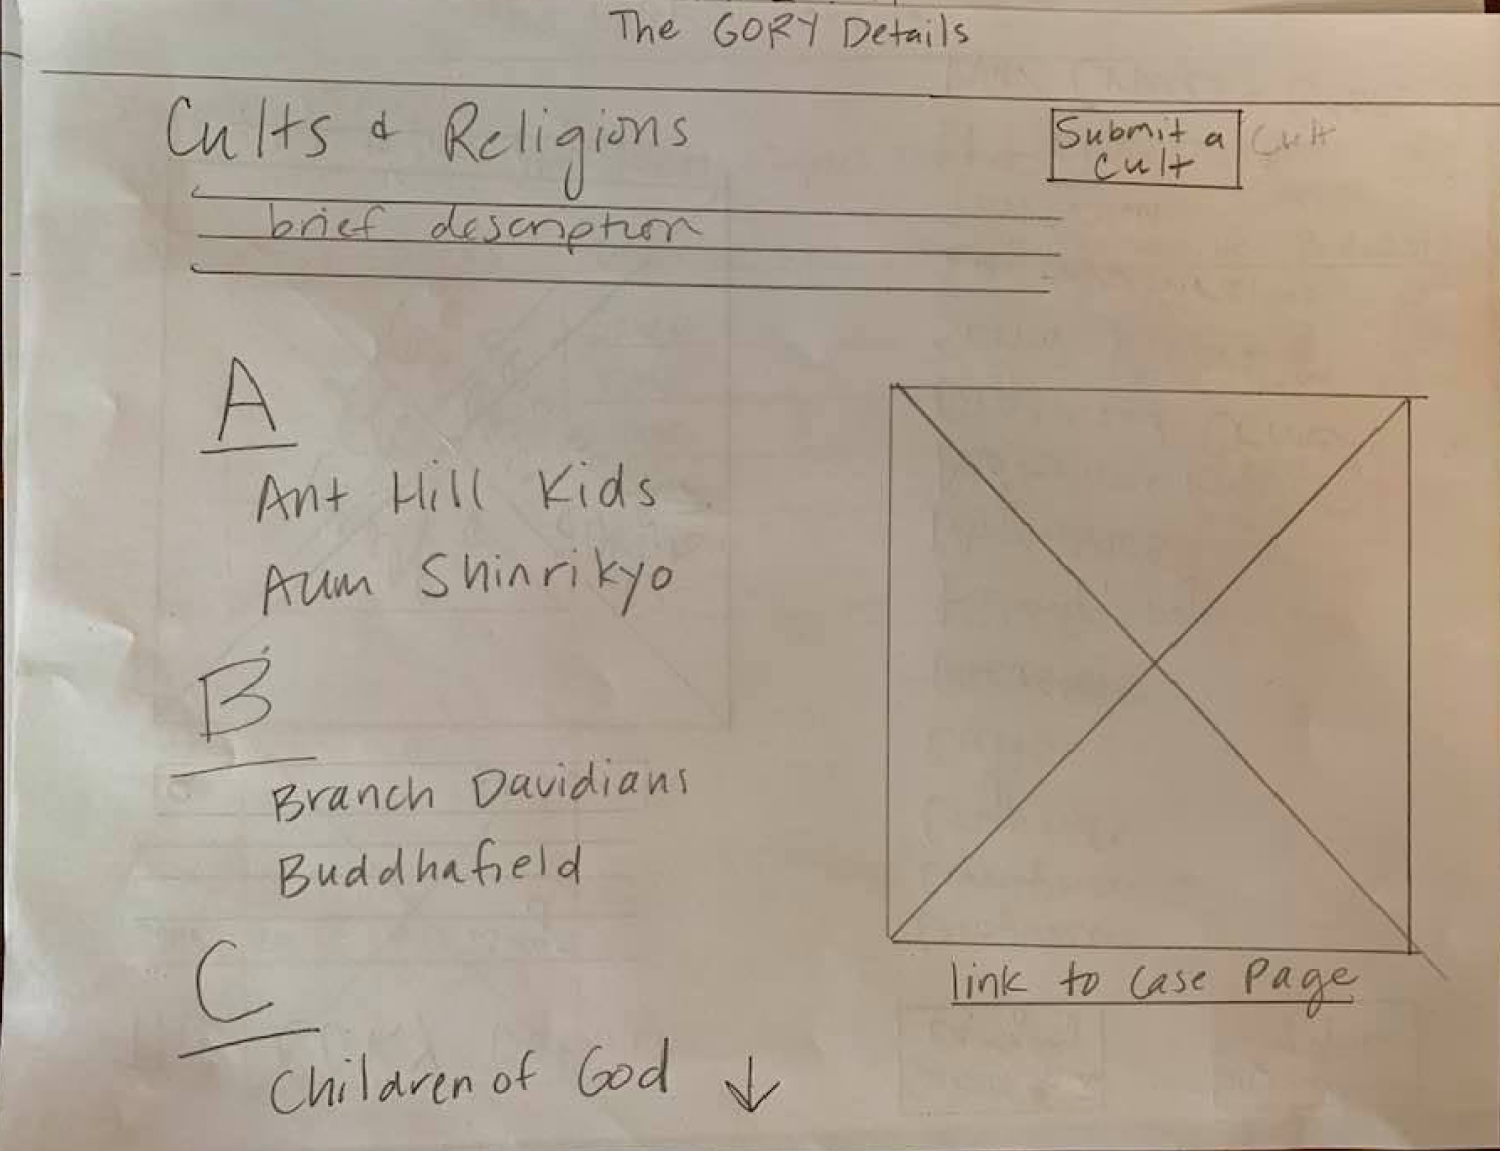 The GORY Details
Cults & Religions
Submit a
Cult
Cult
brief description
A
Ant Hill Kids
Aum Shinrikyo
B
Branch Davidians
Buddhafield
C
Children of God
link to case Page